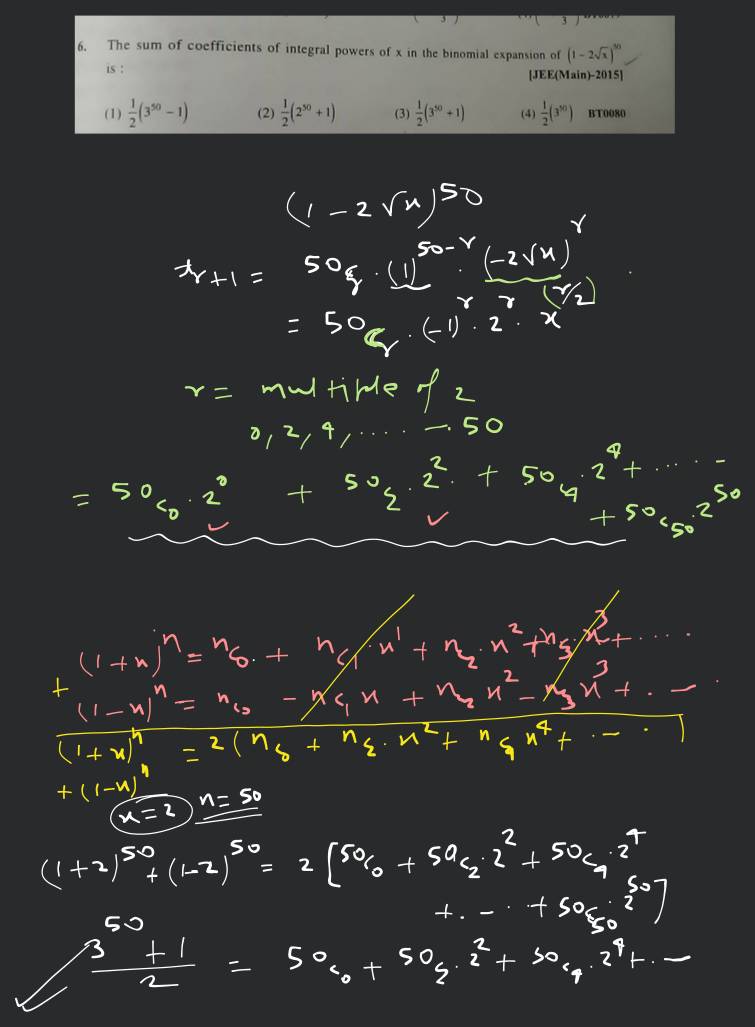 6. The sum of coefficients of integral powers of x in the binomial expansion of (1 – 2√x)^50
is :
[JEE(Main)-2015]
(1) 1/2(3^50 – 1) (2) 1/2(2^50 + 1) (3) 1/2(3^50 + 1) (4) 1/2(3^50) BT0080
(1 – 2√x)^50
t_r+1 = 50C_r · (1)^50-r · (-2√x)^r
= 50C_r · (-1)^r · 2^r · x^(r/2)
r = multiple of 2
0, 2, 4, ..... – 50
= 50C_0 · 2^0 + 50C_2 · 2^2 · + 50C_4 · 2^4 + ..... –
+ 50C_50 · 2^50
(1+x)^n = nC_0 · + nC_1 · x^1 + nC_2 · x^2 + nC_3 x^3 + ....
+
(1-x)^n = nC_0 – nC_1 x + nC_2 x^2 – nC_3 x^3 + . – .
(1+x)^n = 2 ( nC_0 + nC_2 · x^2 + nC_4 x^4 + .. – . )
+ (1-x)^n
x = 2 n = 50
(1+2)^50 + (1-2)^50 = 2 [ 50C_0 + 50C_2 · 2^2 + 50C_4 · 2^4
+ . – . . + 50C_50 · 2^50 ]
3^50 + 1 / 2 = 50C_0 + 50C_2 · 2^2 + 50C_4 · 2^4 + . –